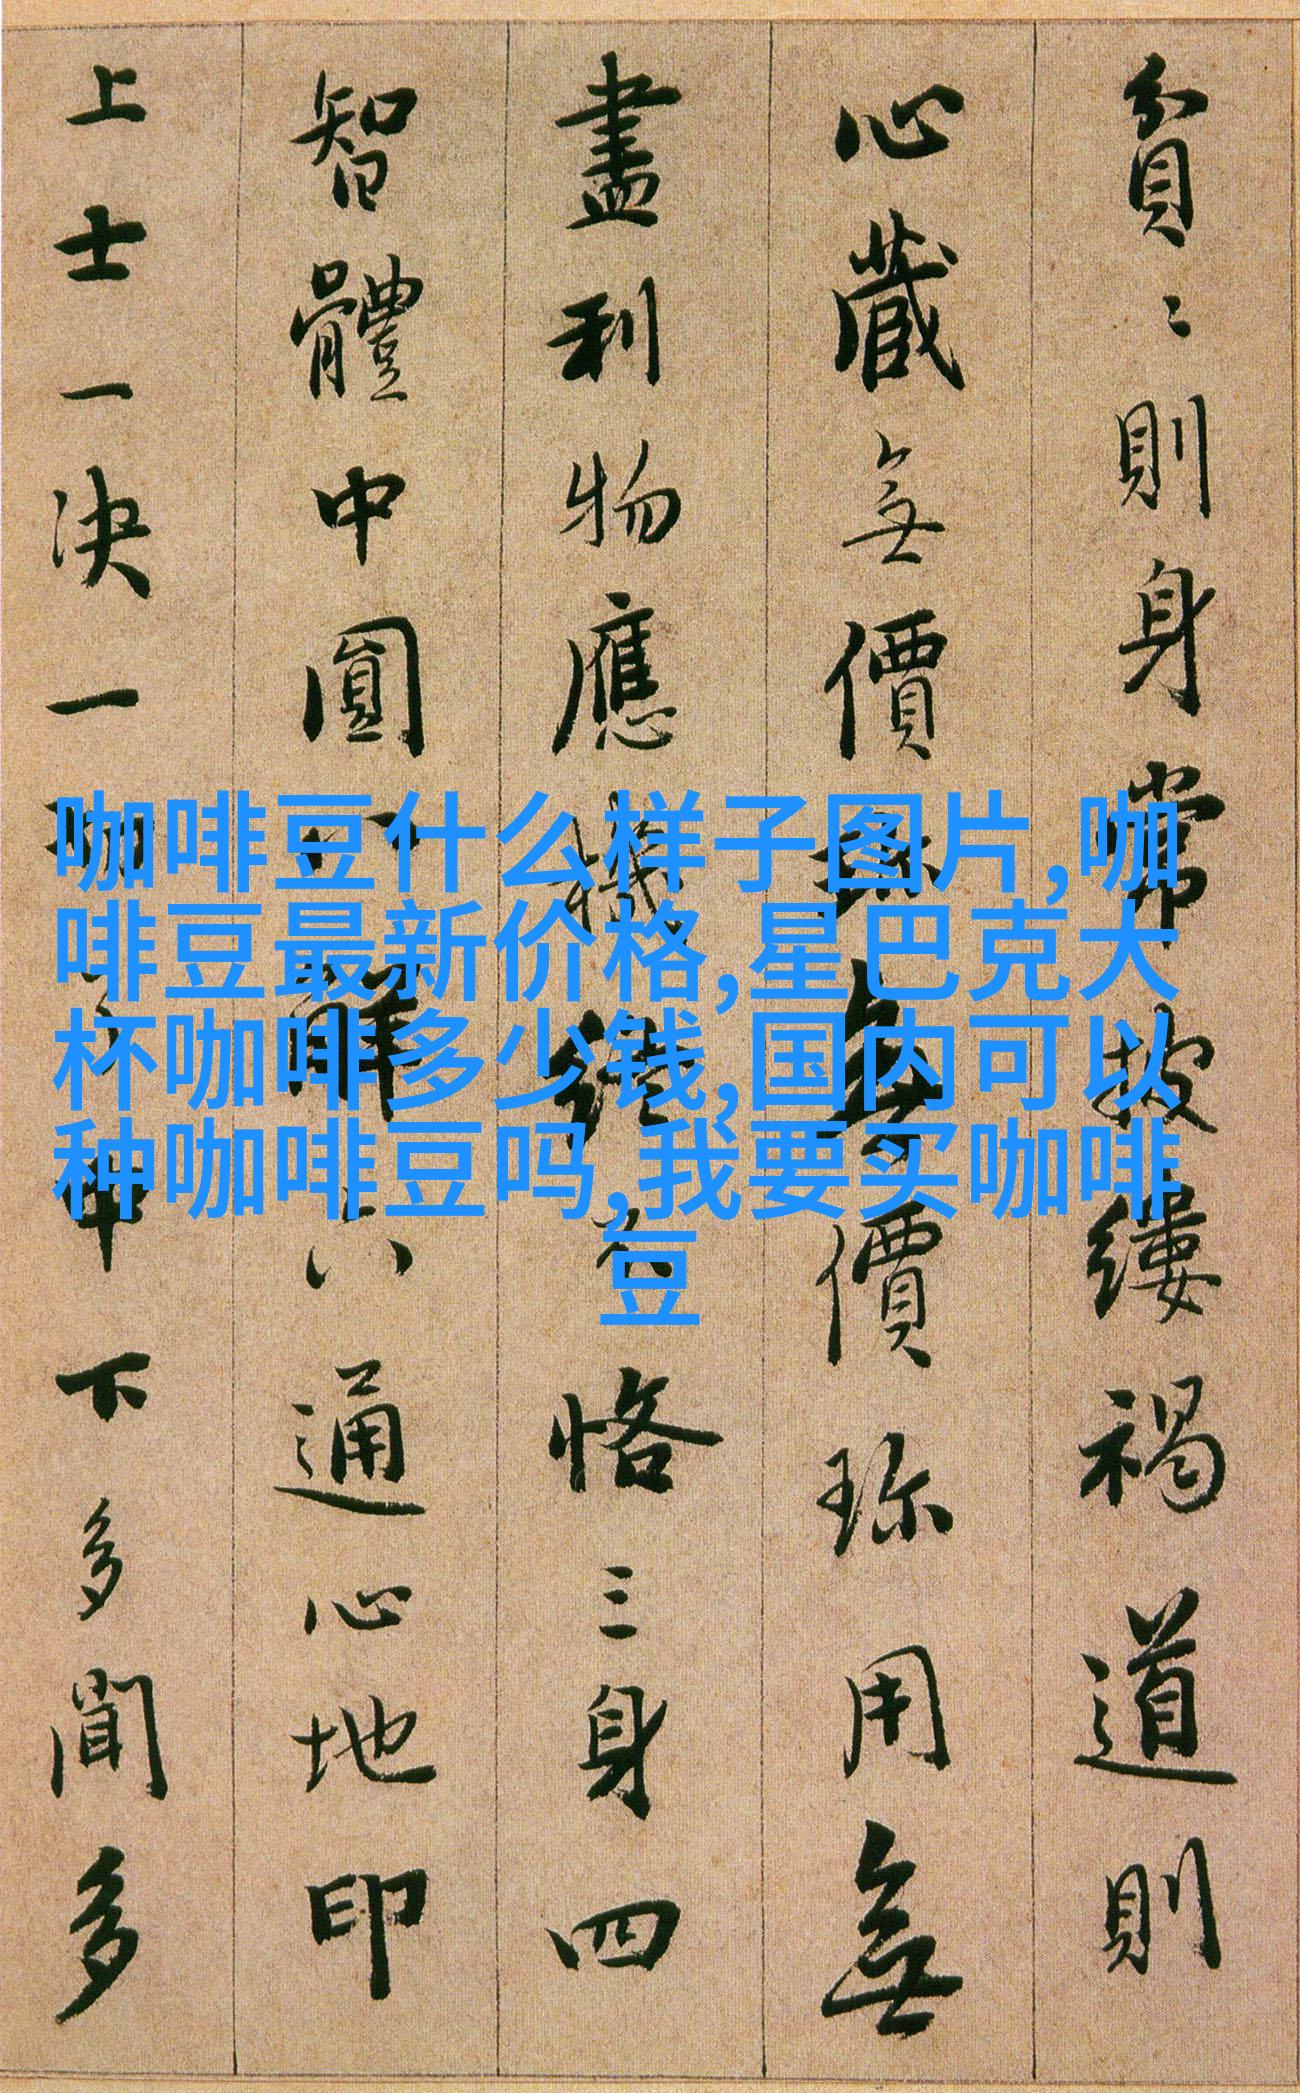 貧〻則身常披縷褐道則
心藏無價珎無價珎用無
盡利物應機終不恪三身四
智體中圓八解六通心地印
上士一決一切了中下多聞多
咖啡豆什么样子图片,咖
啡豆最新价格,星巴克大
杯咖啡多少钱,国内可以
种咖啡豆吗,我要买咖啡
豆